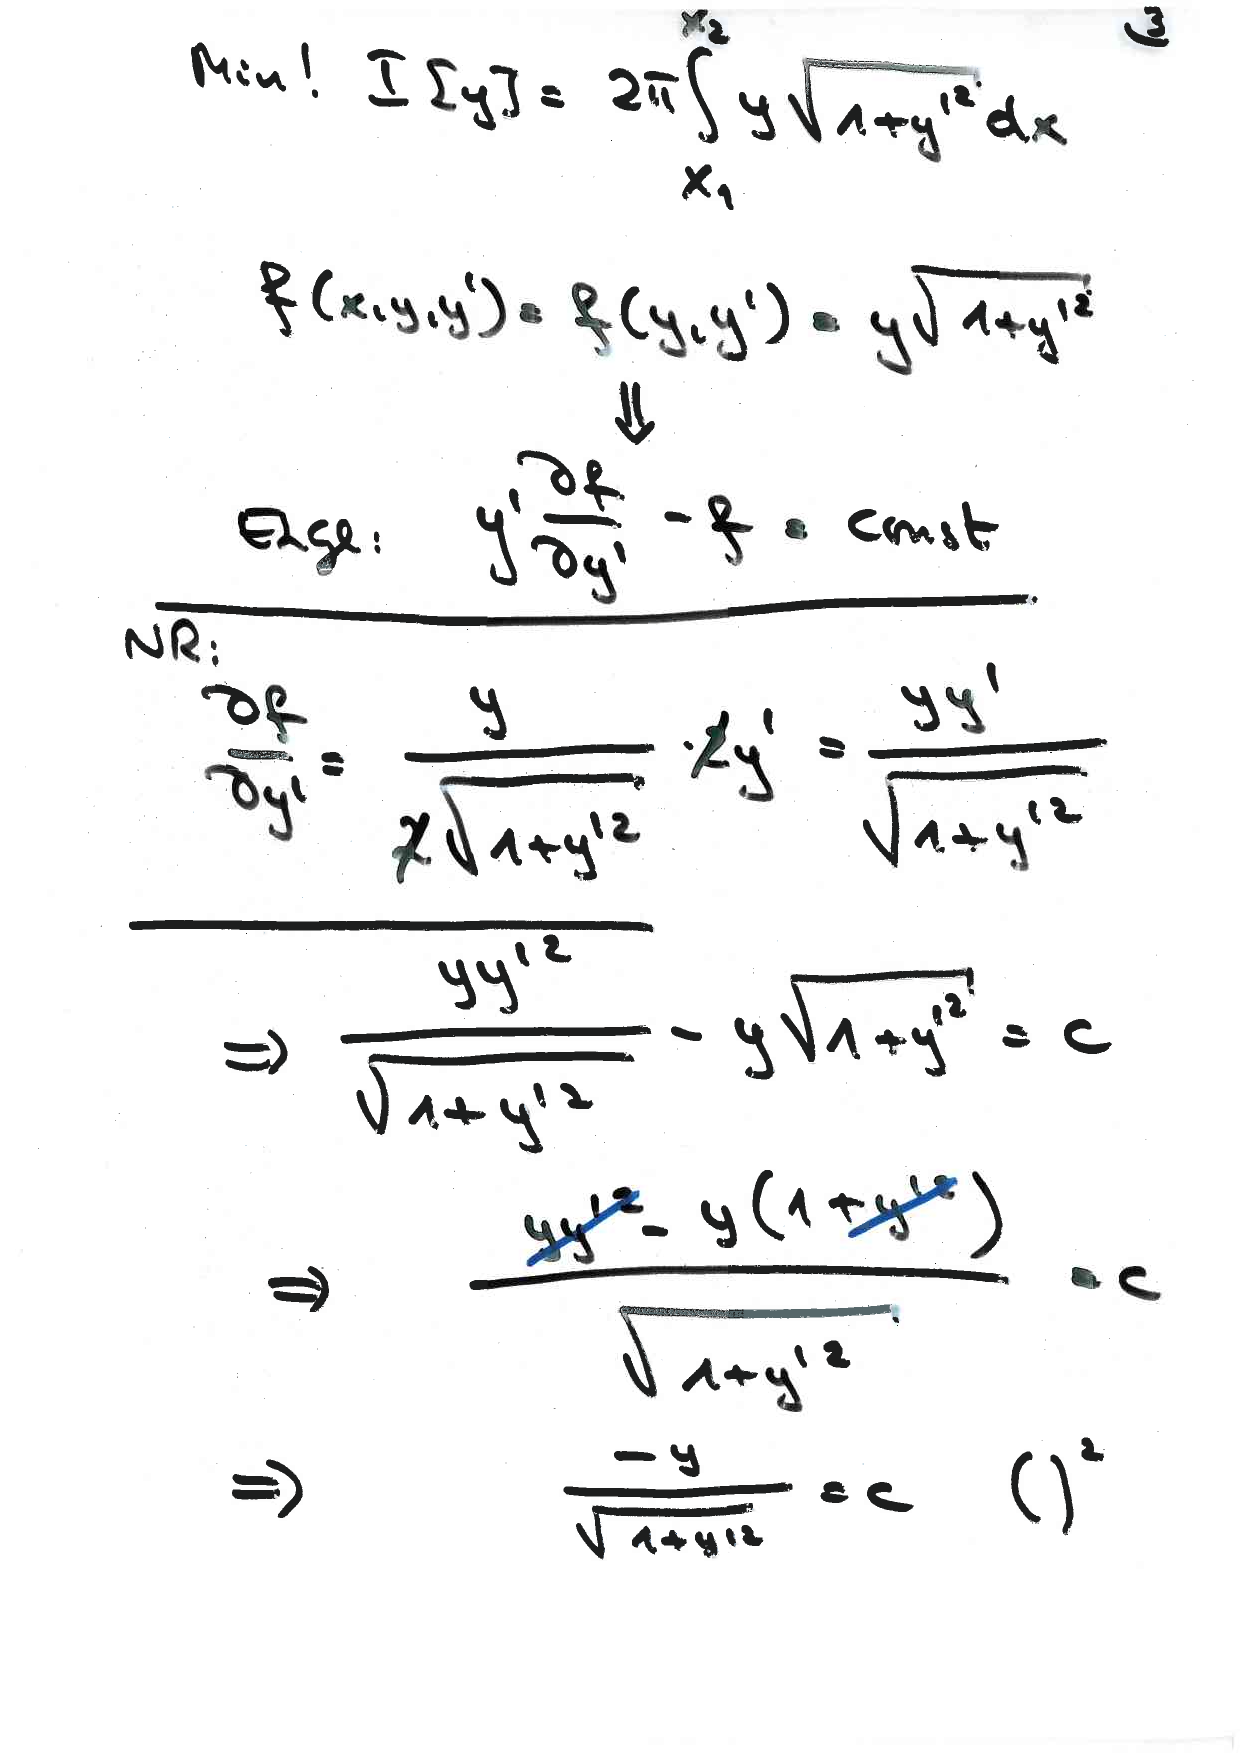 3
Min! I[y] = 2π∫_{x₁}^{x₂} y √(1+y'²) dx
f(x,y,y') = f(y,y') = y√(1+y'²)
⇓
ELGL: y' ∂f/∂y' - f = const
NR:
∂f/∂y' = y/(2√(1+y'²)) · 2y' = yy'/√(1+y'²)
⇒ yy'²/√(1+y'²) - y√(1+y'²) = c
⇒ (yy'² - y(1+y'²))/√(1+y'²) = c
⇒ -y/√(1+y'²) = c ( )²